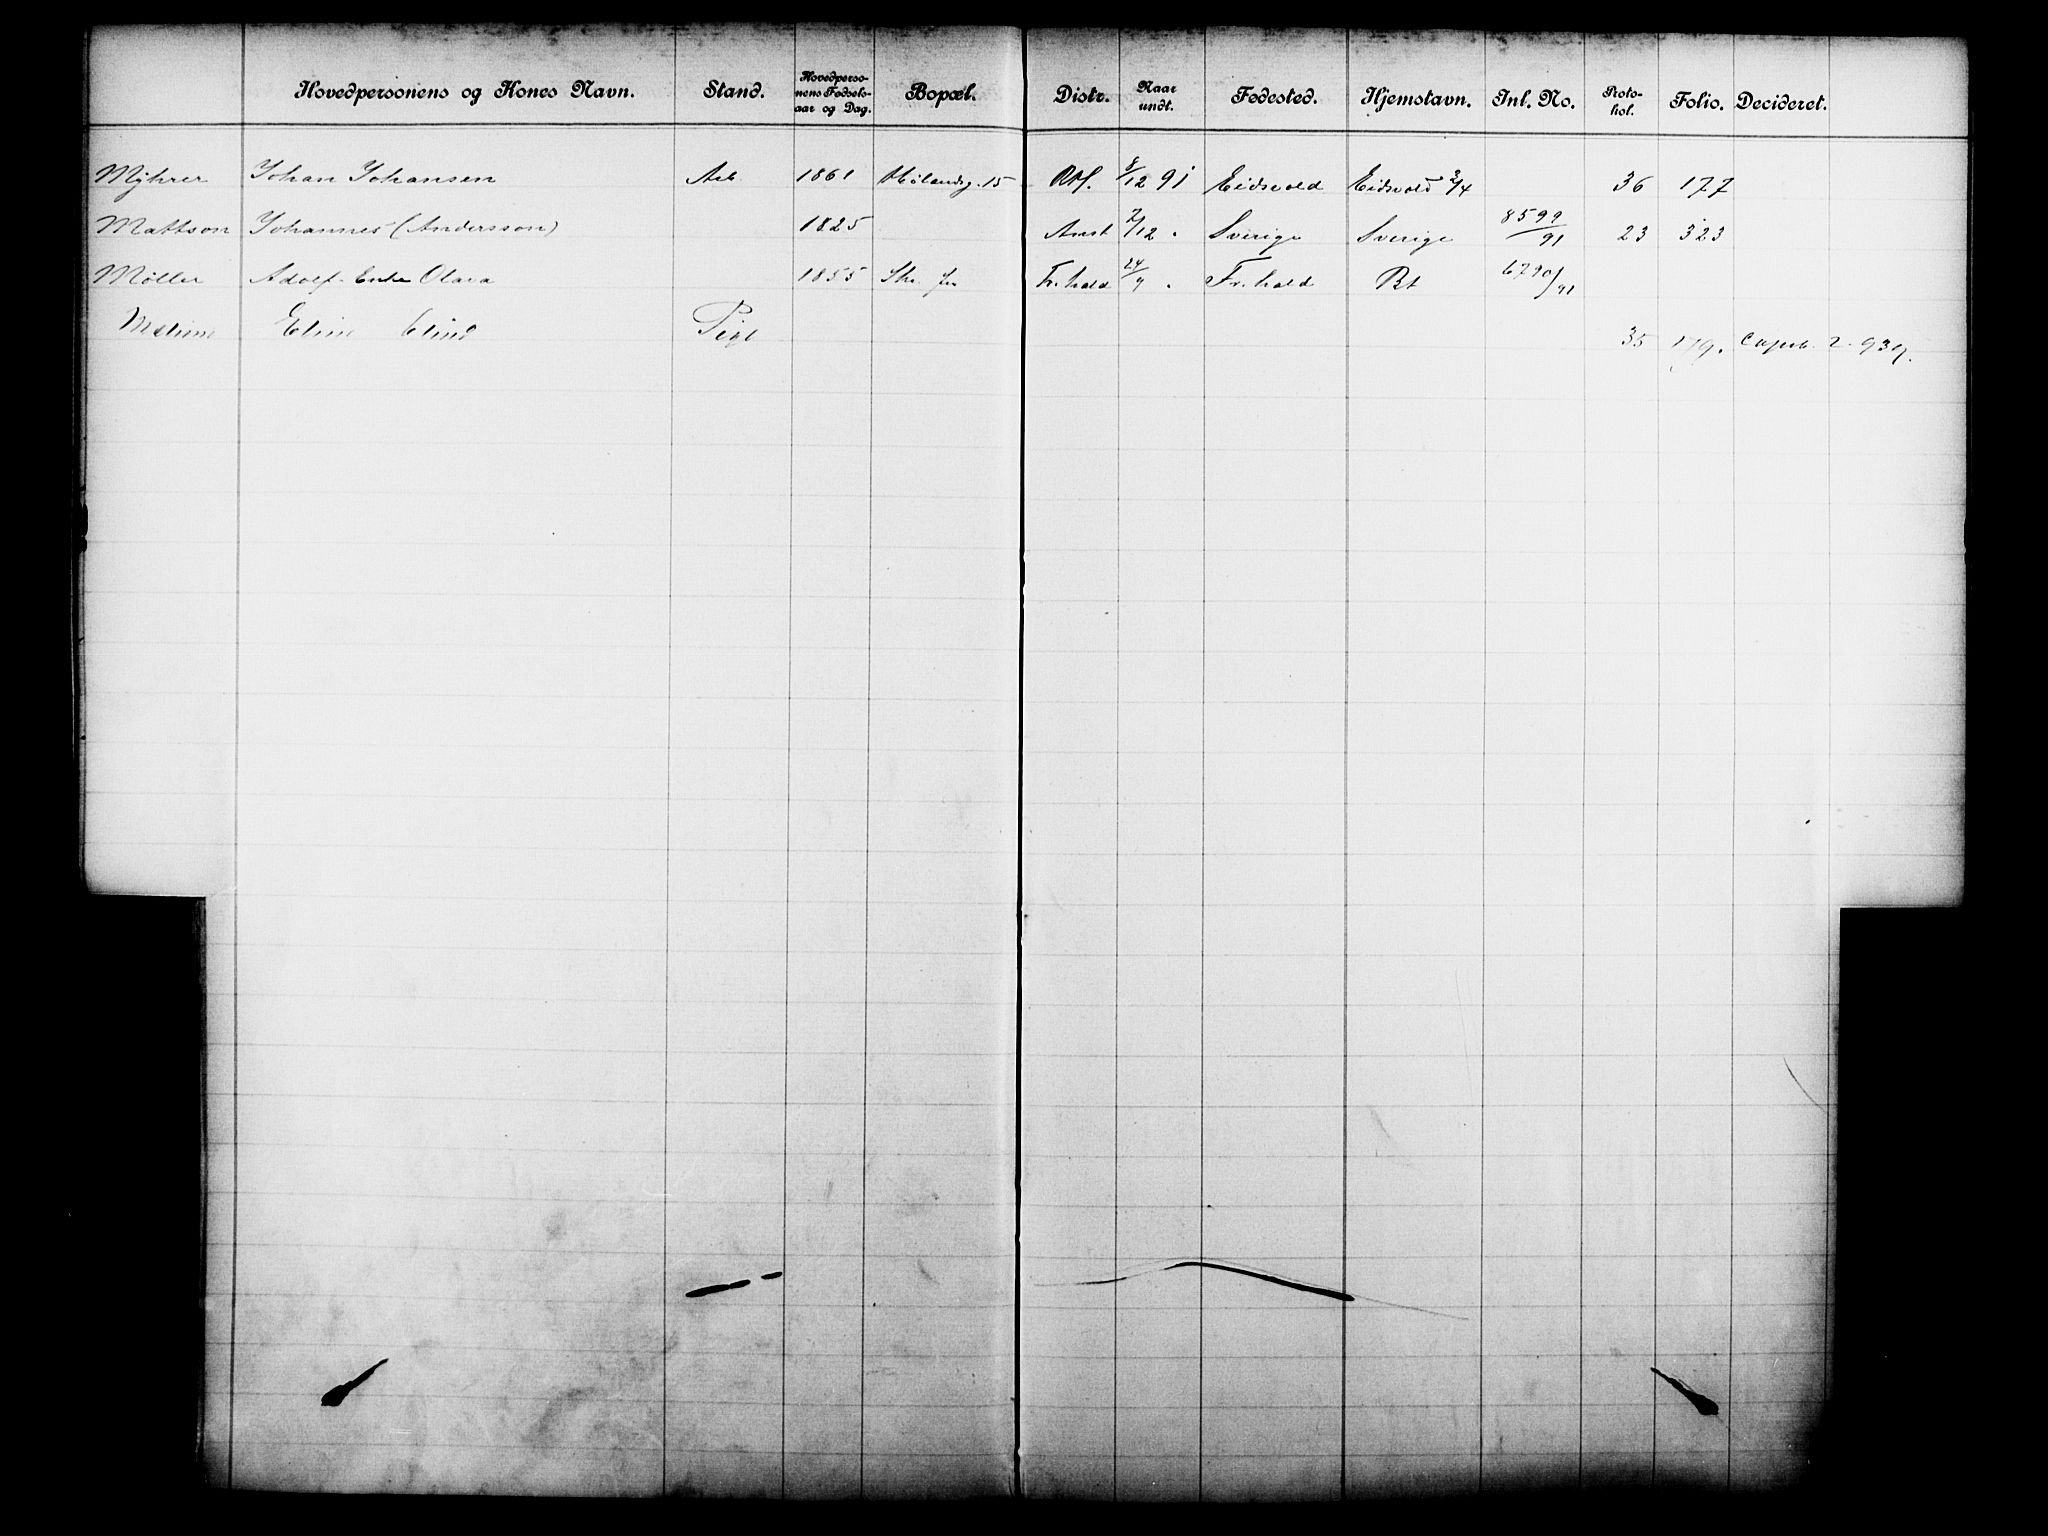 Hovedpersonens og Kones Navn. Stand. Hovedperso-nens Fødsels-aar og Dag. Bopæl. Distr. Naar undt. Fødested. Hjemstavn. Inl. No. Proto-kol. Folio. Decideret.
Myhrer Johan Johansen Arb. 1861 15 8/12 91 Eidsvold Eidsvold 2/4 36 177
Mattson Johannes (Andersson) 1825 2/12 " Sverige Sverige 8599/91 23 323
Møller Adolf Enke Olava 1855 Fr.hald 24/9 " Fr.hald 6790/91
Eline Pige 35 179.